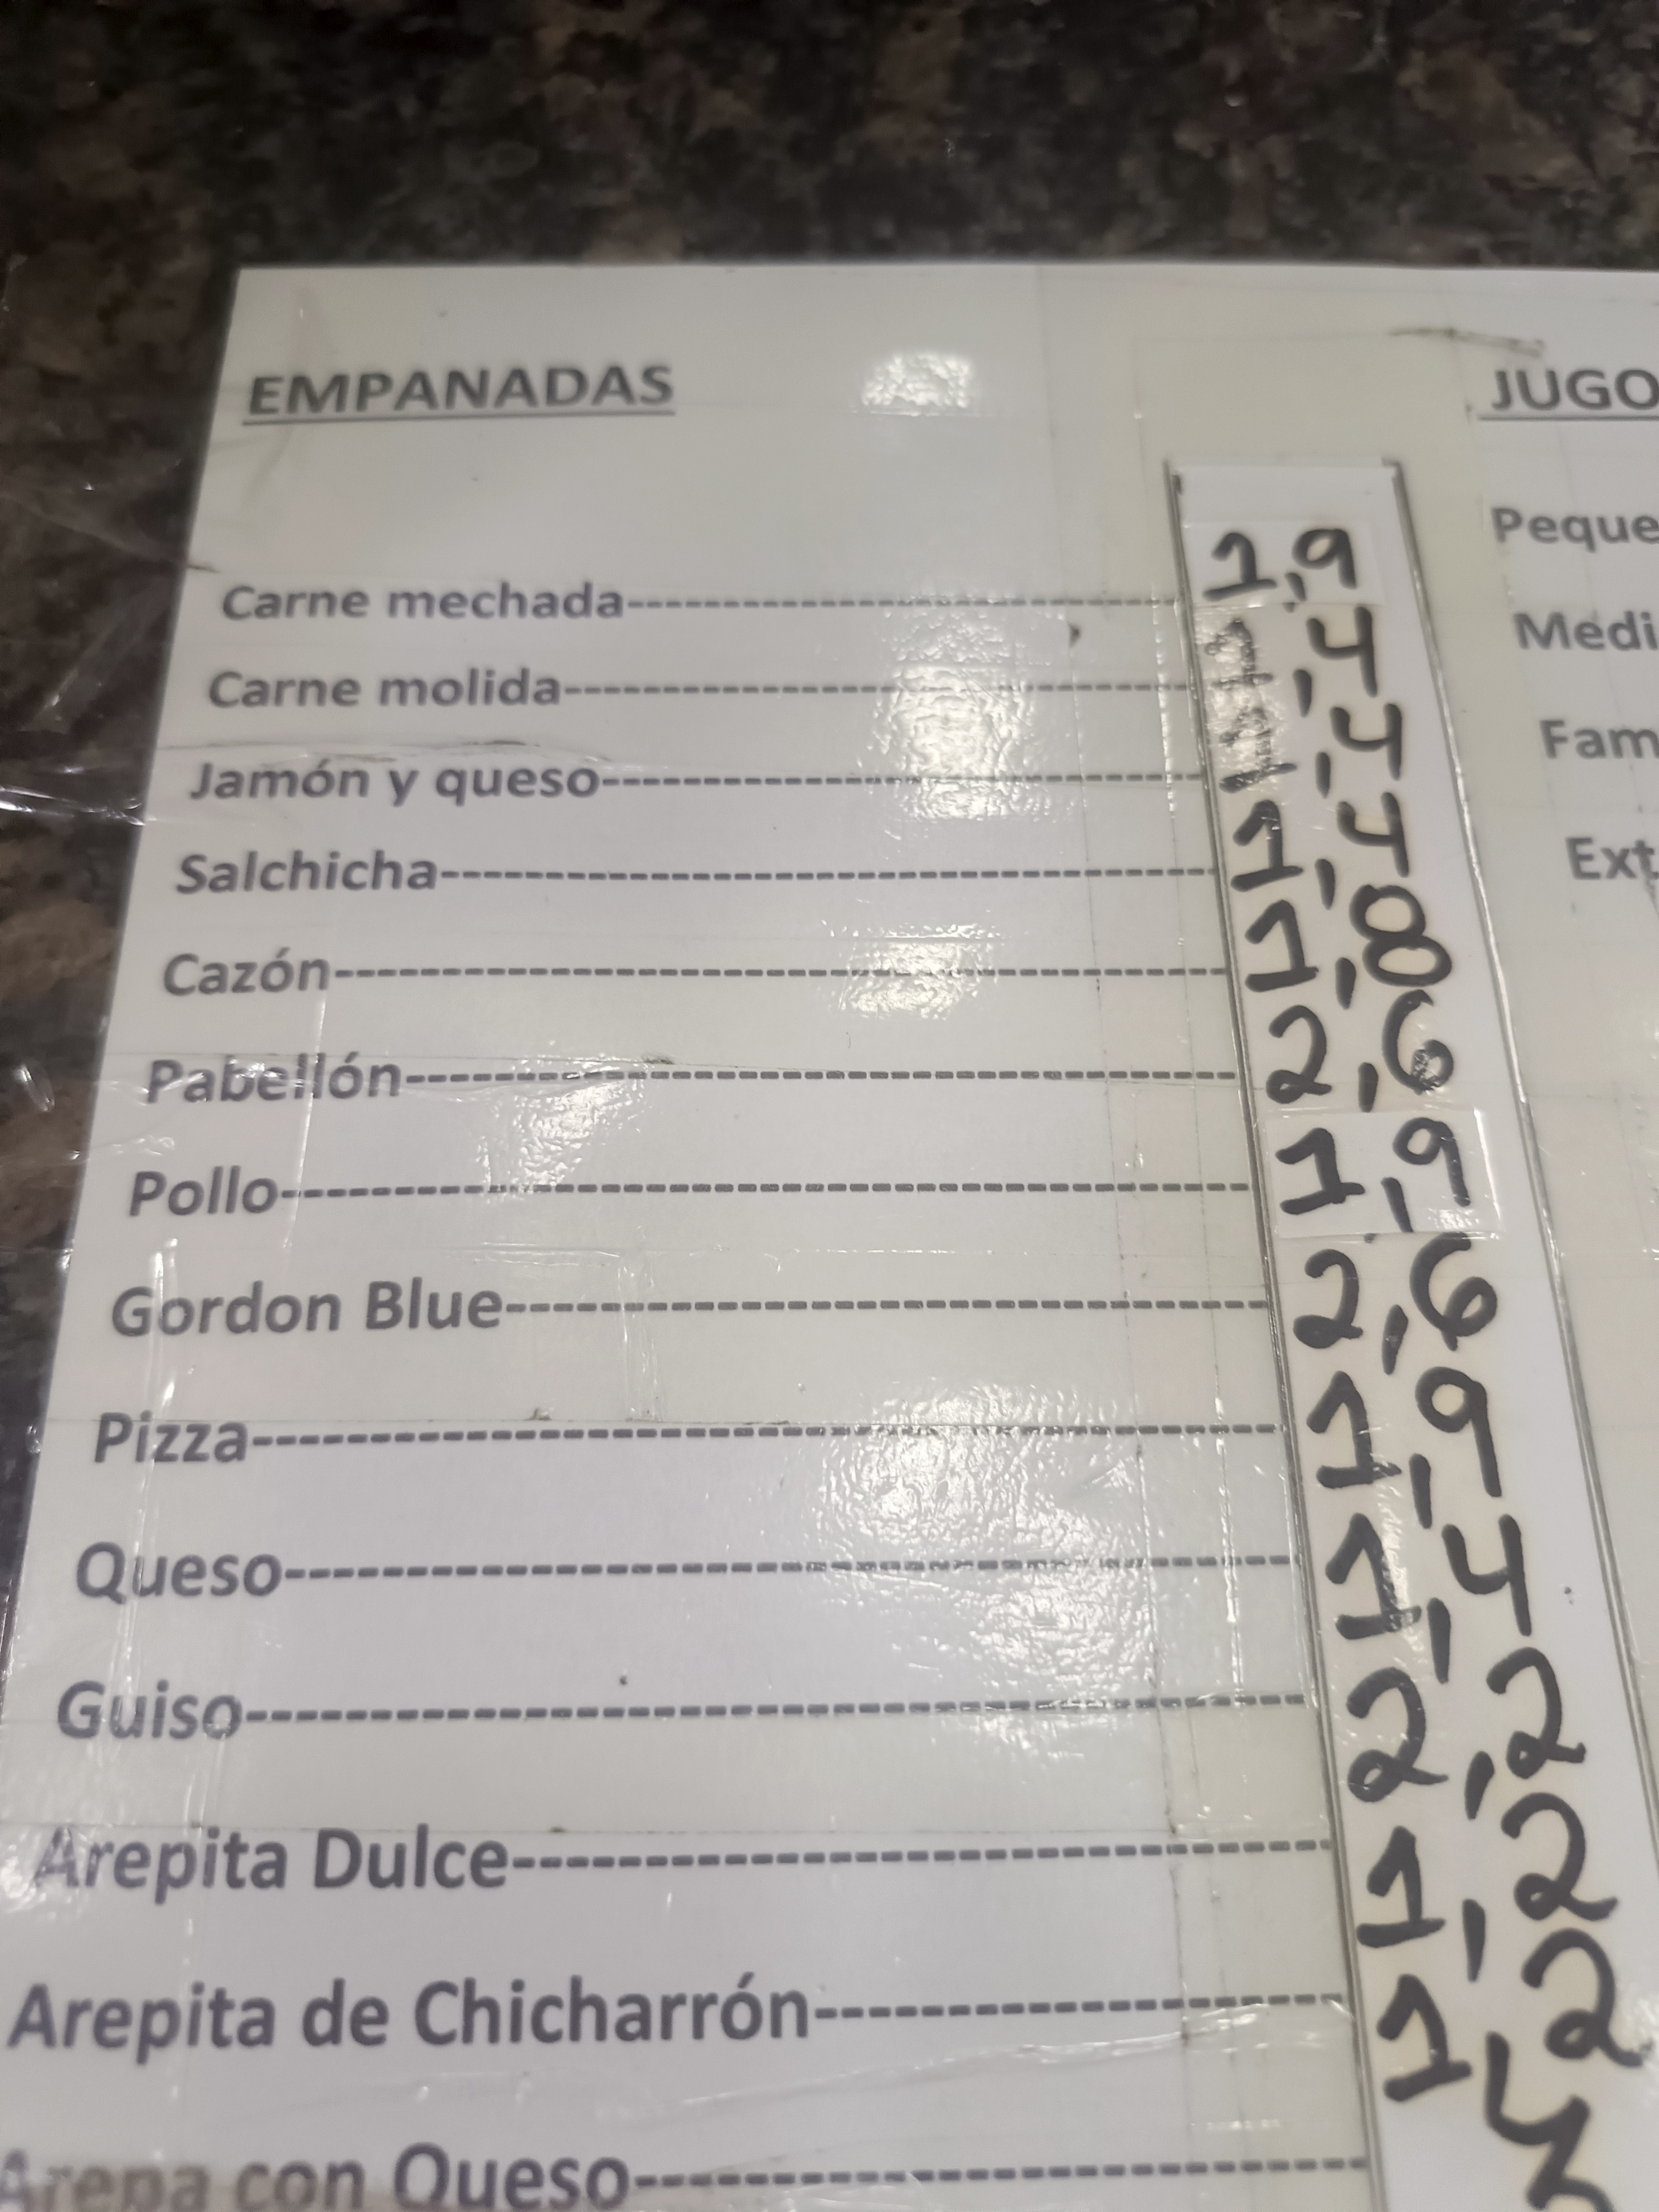 EMPANADAS
Carne mechada-------------------------------- 1,9
Carne molida-------------------------------- 1,4
Jamón y queso-------------------------------- 1,4
Salchicha-------------------------------- 1,4
Cazón-------------------------------- 1,8
Pabellón-------------------------------- 2,6
Pollo-------------------------------- 1,9
Gordon Blue-------------------------------- 2,6
Pizza-------------------------------- 1,9
Queso-------------------------------- 1,4
Guiso-------------------------------- 2,2
Arepita Dulce-------------------------------- 1,2
Arepita de Chicharrón-------------------- 1,2
Arepa con Queso--------------------
JUGO
Peque
Medi
Fam
Ext